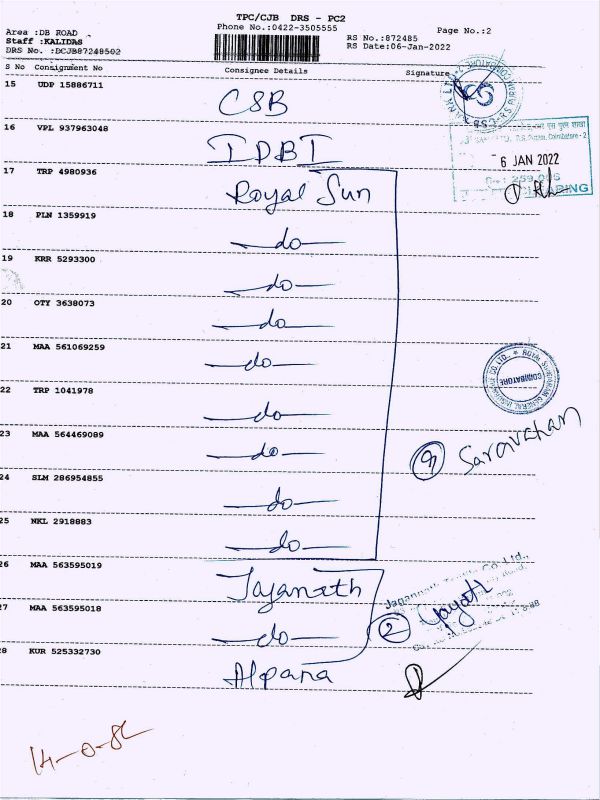 TPC/CJB DRS - PC2
Area :DB ROAD
Phone No.:0422-3505555
Page No.:2
Staff :KALIDAS
RS No.:872485
DRS No. :DCJB87248502
RS Date:06-Jan-2022
S No Consignment No Consignee Details Signature
15 UDP 15886711 CSB
16 VPL 937963048 IDBI
6 JAN 2022
17 TRP 4980936 Royal Sun
18 PLN 1359919 do
19 KRR 5293300 do
20 OTY 3638073 do
21 MAA 561069259 do
ROYAL SUNDARAM GENERAL INSURANCE CO. LTD.
COIMBATORE
22 TRP 1041978 do
23 MAA 564469089 do
9 Saravanan
24 SLM 286954855 do
25 NKL 2918883 do
26 MAA 563595019 Jaganath
27 MAA 563595018 do
2 Gayathri
28 KUR 525332730 Alpana